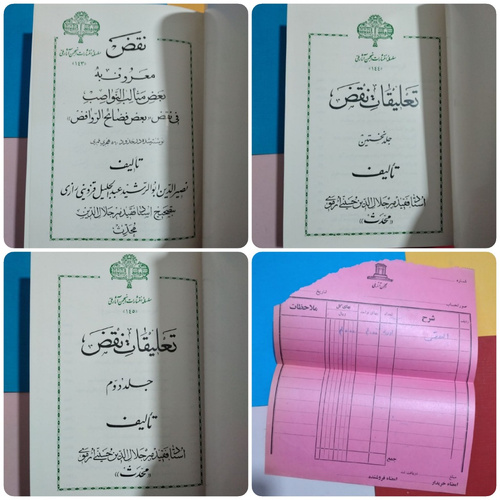 سلسله انتشارات انجمن آثار ملی
«۱۴۳»
نقض
معروف به
بعض مثالب النواصب
فی نقض «بعض فضائح الروافض»
تألیف
نصیرالدین ابوالرشید عبدالجلیل قزوینی رازی
بتصحیح استاد فقید میر جلال الدین
محدث
سلسله انتشارات انجمن آثار ملی
«۱۴۴»
تعلیقات نقض
جلد نخستین
تألیف
استاد فقید میر جلال الدین حسینی ارموی
«محدث»
سلسله انتشارات انجمن آثار ملی
«۱۴۵»
تعلیقات نقض
جلد دوم
تألیف
استاد فقید میر جلال الدین حسینی ارموی
«محدث»
انجمن آثار ملی
شماره
تاریخ
صورتحساب
شرح
ملاحظات
ریال
جمع
امضاء فروشنده
امضاء خریدار